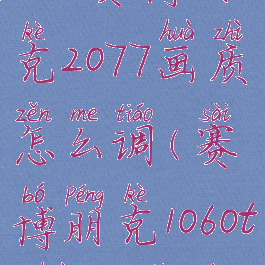 kè huà zhì
克2077画质
zěn me tiáo sài
怎么调(赛
bó péng kè
博朋克1060t